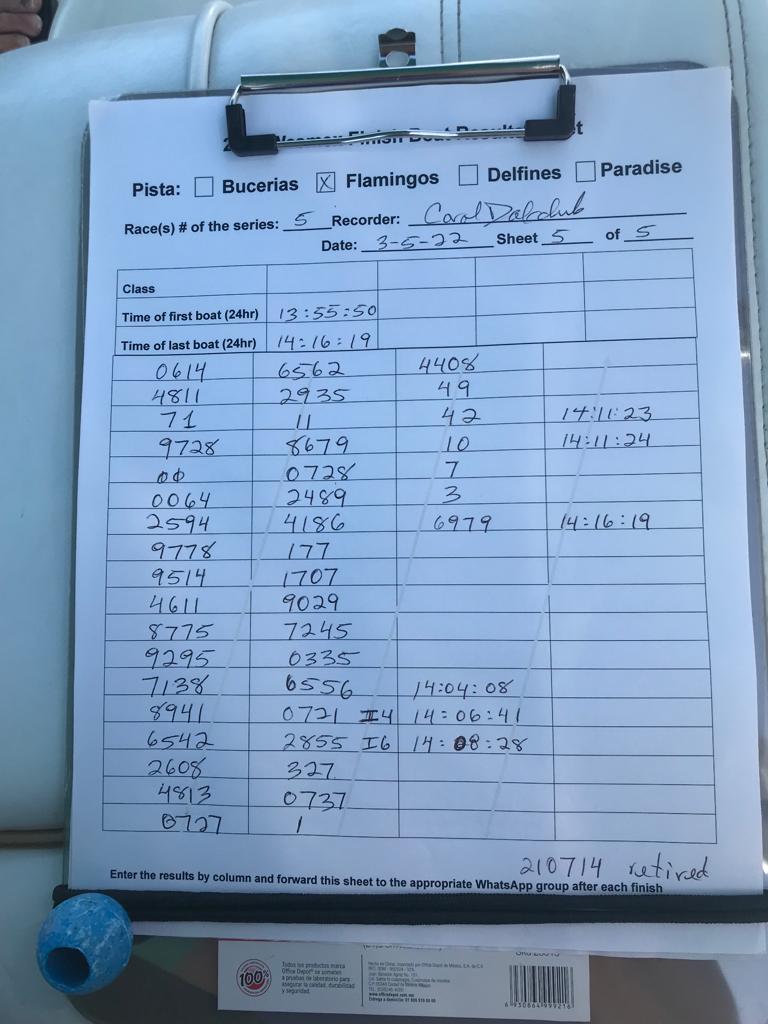 Finish Boat Result
Pista: Bucerias X Flamingos Delfines Paradise
Race(s) # of the series: 5 Recorder: Carol
Date: 3-5-22 Sheet 5 of 5
Class
Time of first boat (24hr) 13:55:50
Time of last boat (24hr) 14:16:19
0614 6562 4408
4811 2935 49
71 11 42 14:11:23
9728 8679 10 14:11:24
00 0728 7
0064 2489 3
2594 4186 6979 14:16:19
9778 177
9514 1707
4611 9029
8775 7245
9295 0335
7138 6556 14:04:08
8941 0721 14:06:41
6542 2855 I6 14:08:28
2608 327
4813 0737
0727 1
210714 retired
Enter the results by column and forward this sheet to the appropriate WhatsApp group after each finish
100%
Todos los productos marca
Office Depot® se someten
a pruebas de laboratorio para
asegurar la calidad, durabilidad
y seguridad.
www.officedepot.com.mx